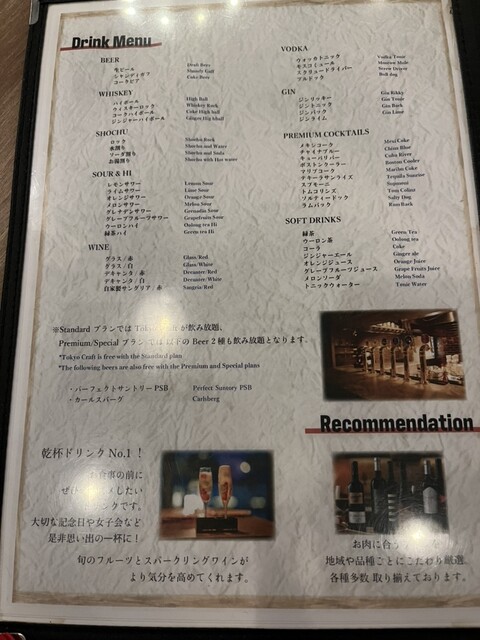 Drink Menu
BEER
生ビール Draft Beer
シャンディガフ Shandy Gaff
コークビア Coke Beer
WHISKEY
ハイボール High Ball
ウィスキーロック Whiskey Rock
コークハイボール Coke High ball
ジンジャーハイボール Ginger High ball
SHOCHU
ロック Shochu Rock
水割り Shochu and Water
ソーダ割り Shochu and Soda
お湯割り Shochu with Hot water
SOUR & HI
レモンサワー Lemon Sour
ライムサワー Lime Sour
オレンジサワー Orange Sour
メロンサワー Melon Sour
グレナデンサワー Grenadin Sour
グレープフルーツサワー Grapefruits Sour
ウーロンハイ Oolong Hi
緑茶ハイ Green tea Hi
WINE
グラス / 赤 Glass/Red
グラス / 白 Glass/White
デキャンタ / 赤 Decanter/Red
デキャンタ / 白 Decanter/White
自家製サングリア / 赤 Sangria/Red
VODKA
ウォッカトニック Vodka Tonic
モスコミュール Moscow Mule
スクリュードライバー Screw Driver
ブルドック Bull dog
GIN
ジンリッキー Gin Rikky
ジントニック Gin Tonic
ジンバック Gin Back
ジンライム Gin Lime
PREMIUM COCKTAILS
メキシコーク Mexi Coke
チャイナブルー China Blue
キューバリバー Cuba River
ボストンクーラー Boston Cooler
マリブコーク Maribu Coke
テキーラサンライズ Tequila Sunrise
スプモーニ
トムコリンズ Tom Colins
ソルティードック Salty Dog
ラムバック Ram Back
SOFT DRINKS
緑茶 Green Tea
ウーロン茶 Oolong tea
コーラ Coke
ジンジャーエール Ginger ale
オレンジジュース Orange Juice
グレープフルーツジュース Grape Fruits Juice
メロンソーダ Melon Soda
トニックウォーター Tonic Water
※Standard プランでは Tokyo Craft が飲み放題、
Premium/Special プランでは 以下の Beer 2 種も飲み放題となります。
*Tokyo Craft is free with the Standard plan
*The following beers are also free with the Premium and Special plans
・パーフェクトサントリー PSB Perfect Suntory PSB
・カールスバーグ Carlsberg
Recommendation
乾杯ドリンク No.1！
お食事の前に
大切な記念日や女子会など
是非思い出の一杯に！
旬のフルーツとスパークリングワインが
より気分を高めてくれます。
お肉に合う
地域や品種ごとにこだわり厳選。
各種多数取り揃えております。